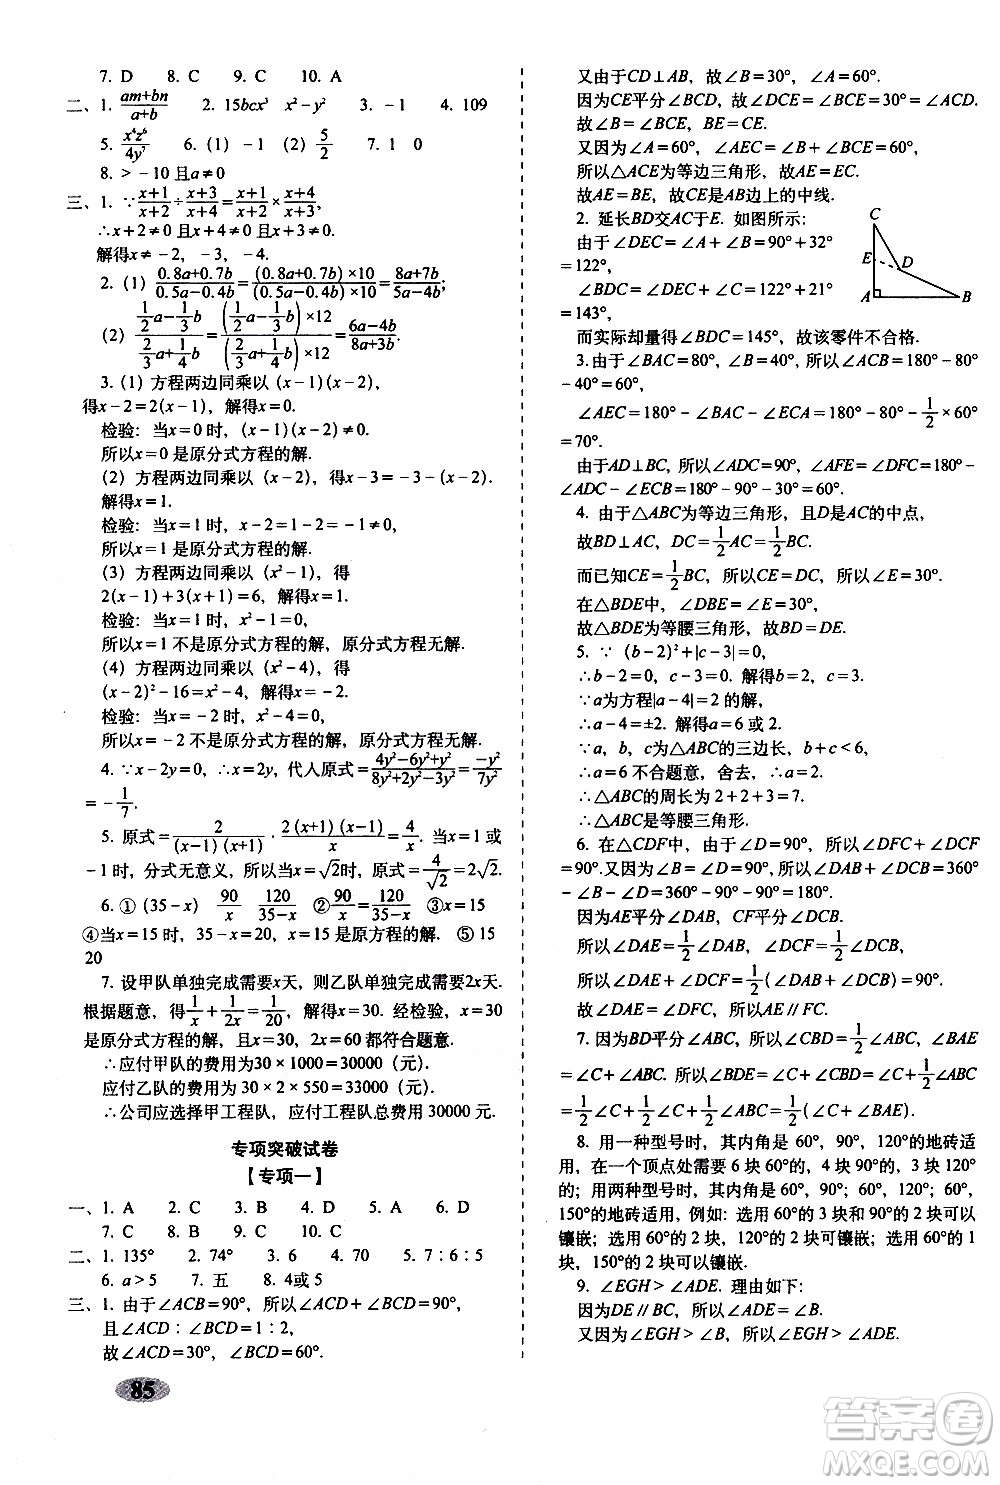 7. D  8. C  9. C  10. A
二、1. (am+bn)/(a+b)  2. 15bcx³  x²-y²  3. -1  4. 109
5. x⁴z⁶/4y⁷  6. (1) -1  (2) 5/2  7. 1  0
8. >-10且a≠0
三、1. ∵(x+1)/(x+2)÷(x+3)/(x+4)=(x+1)/(x+2)×(x+4)/(x+3),
∴x+2≠0且x+4≠0且x+3≠0,
解得x≠-2, -3, -4.
2. (1) (0.8a+0.7b)/(0.5a-0.4b)=(0.8a+0.7b)×10/(0.5a-0.4b)×10=(8a+7b)/(5a-4b).
(2) (1/2a-1/3b)/(1/2a+1/4b)=(1/2a-1/3b)×12/(1/2a+1/4b)×12=(6a-4b)/(8a+3b).
3. (1) 方程两边同乘以 (x-1)(x-2),
得x-2=2(x-1), 解得x=0.
检验: 当x=0时, (x-1)(x-2)≠0.
所以x=0是原分式方程的解.
(2) 方程两边同乘以 (x-2), 得x-3=-3-(x-2).
解得x=1.
检验: 当x=1时, x-2=1-2=-1≠0.
所以x=1是原分式方程的解.
(3) 方程两边同乘以 (x²-1), 得
2(x-1)+3(x+1)=6, 解得x=1.
检验: 当x=1时, x²-1=0,
所以x=1不是原分式方程的解, 原分式方程无解.
(4) 方程两边同乘以 (x²-4), 得
(x-2)²-16=x²-4, 解得x=-2.
检验: 当x=-2时, x²-4=0,
所以x=-2不是原分式方程的解, 原分式方程无解.
4. ∵x-2y=0, ∴x=2y, 代入原式=(4y²-6y²+y²)/(8y²+2y²-3y²)=-y²/7y²
=-1/7.
5. 原式=2/(x-1)(x+1)·2(x+1)(x-1)/x=4/x. 当x=1或
-1时, 分式无意义, 所以当x=√2时, 原式=4/√2=2√2.
6. ① (35-x)  90/x  120/(35-x)  ②90/x=120/(35-x)  ③x=15
④当x=15时, 35-x=20, x=15是原方程的解.  ⑤ 15
20
7. 设甲队单独完成需要x天, 则乙队单独完成需要2x天.
根据题意, 得1/x+1/2x=1/20, 解得x=30. 经检验, x=30
是原分式方程的解, 且x=30, 2x=60都符合题意.
∴应付甲队的费用为30×1000=30000 (元).
应付乙队的费用为30×2×550=33000 (元).
∴公司应选择甲工程队, 应付工程队总费用30000元.
专项突破试卷
【专项一】
一、1. A  2. C  3. B  4. A  5. D  6. D
7. C  8. B  9. C  10. C
二、1. 135°  2. 74°  3. 6  4. 70  5. 7:6:5
6. a>5  7. 五  8. 4或5
三、1. 由于∠ACB=90°, 所以∠ACD+∠BCD=90°,
且∠ACD:∠BCD=1:2,
故∠ACD=30°, ∠BCD=60°.
85
又由于CD⊥AB, 故∠B=30°, ∠A=60°.
因为CE平分∠BCD, 故∠DCE=∠BCE=30°=∠ACD.
故∠B=∠BCE, BE=CE.
又因为∠A=60°, ∠AEC=∠B+∠BCE=60°,
所以△ACE为等边三角形, AE=EC.
故AE=BE, 故CE是AB边上的中线.
2. 延长BD交AC于E. 如图所示:
由于∠DEC=∠A+∠B=90°+32°
=122°,
∠BDC=∠DEC+∠C=122°+21°
=143°,
C
E
D
A
B
而实际却量得∠BDC=145°, 故该零件不合格.
3. 由于∠BAC=80°, ∠B=40°, 所以∠ACB=180°-80°
-40°=60°,
∠AEC=180°-∠BAC-∠ECA=180°-80°-1/2×60°
=70°.
由于AD⊥BC, 所以∠ADC=90°, ∠AFE=∠DFC=180°-
∠ADC-∠ECB=180°-90°-30°=60°.
4. 由于△ABC为等边三角形, 且D是AC的中点,
故BD⊥AC, DC=1/2AC=1/2BC.
而已知CE=1/2BC, 所以CE=DC, 所以∠E=30°.
在△BDE中, ∠DBE=∠E=30°,
故△BDE为等腰三角形, 故BD=DE.
5. ∵ (b-2)²+|c-3|=0,
∴b-2=0, c-3=0. 解得b=2, c=3.
∵a为方程|a-4|=2的解,
∴a-4=±2. 解得a=6或2.
∵a, b, c为△ABC的三边长, b+c<6,
∴a=6不合题意, 舍去, ∴a=2.
∴△ABC的周长为2+2+3=7.
∴△ABC是等腰三角形.
6. 在△CDF中, 由于∠D=90°, 所以∠DFC+∠DCF
=90°.又因为∠B=∠D=90°, 所以∠DAB+∠DCB=360°
-∠B-∠D=360°-90°-90°=180°.
因为AE平分∠DAB, CF平分∠DCB.
所以∠DAE=1/2∠DAB, ∠DCF=1/2∠DCB,
所以∠DAE+∠DCF=1/2(∠DAB+∠DCB)=90°.
故∠DAE=∠DFC, 所以AE∥FC.
7. 因为BD平分∠ABC, 所以∠CBD=1/2∠ABC, ∠BAE
=∠C+∠ABC. 所以∠BDE=∠C+∠CBD=∠C+1/2∠ABC
=1/2∠C+1/2∠C+1/2∠ABC=1/2(∠C+∠BAE).
8. 用一种型号时, 其内角是60°, 90°, 120°的地砖适
用, 在一个顶点处需要6块60°的, 4块90°的, 3块120°
的; 用两种型号时, 其内角是60°, 90°; 60°, 120°; 60°,
150°的地砖适用, 例如: 选用60°的3块和90°的2块可以
镶嵌; 选用60°的2块, 120°的2块可镶嵌; 选用60°的1
块, 150°的2块可以镶嵌.
9. ∠EGH>∠ADE. 理由如下:
因为DE∥BC, 所以∠ADE=∠B.
又因为∠EGH>∠B, 所以∠EGH>∠ADE.
答案圈
MXQE.COM